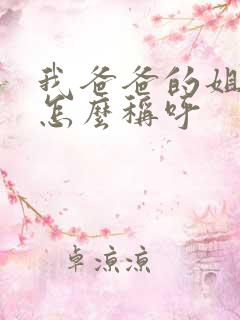 我爸爸的姐
怎麼稱呼
卓涼涼